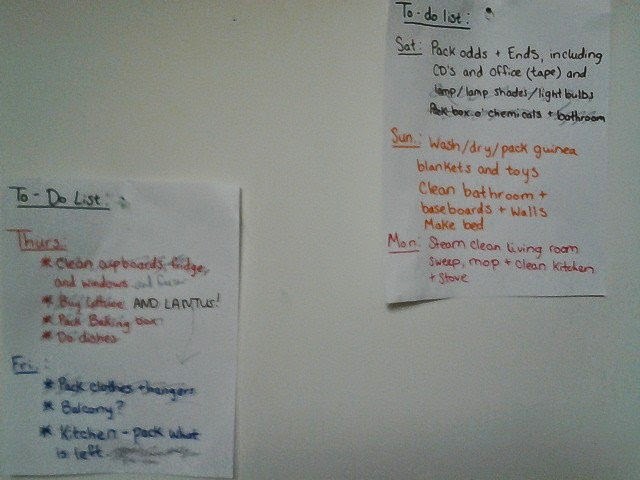 To-Do List:
Thurs:
* Clean cupboards, fridge,
and windows
* Buy lettuce AND LANTUS!
* Pack Baking box
* Do dishes
Fri:
* Pack clothes + hangers
* Balcony?
* Kitchen - pack what
is left.
To-do list:
Sat: Pack odds + Ends, including
CD's and office (tape) and
lamp/lamp shades/light bulbs
Pack box o' chemicals + bathroom
Sun: Wash/dry/pack guinea
blankets and toys
Clean bathroom +
baseboards + walls
Make bed
Mon: Steam clean living room
sweep, mop + clean kitchen
+ stove